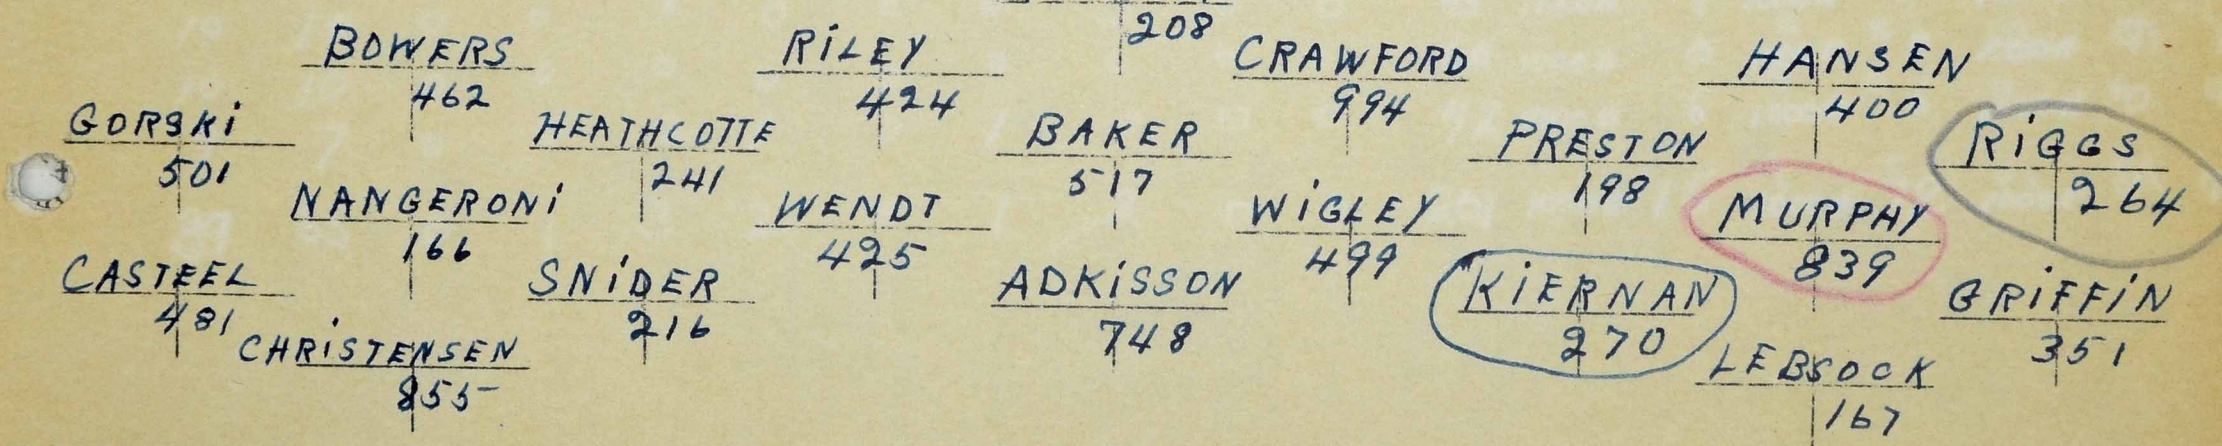 208
BOWERS
462
RiLEY
424
CRAWFORD
994
HANSEN
400
GORSKi
501
HEATHCOTTE
241
BAKER
517
PRESTON
198
RiGGS
264
NANGERONi
166
WENDT
425
WiGLEY
499
MURPHY
839
CASTEEL
481
SNiDER
216
ADKiSSON
748
KiERNAN
270
GRiFFiN
351
CHRiSTENSEN
855
LEBSOCK
167